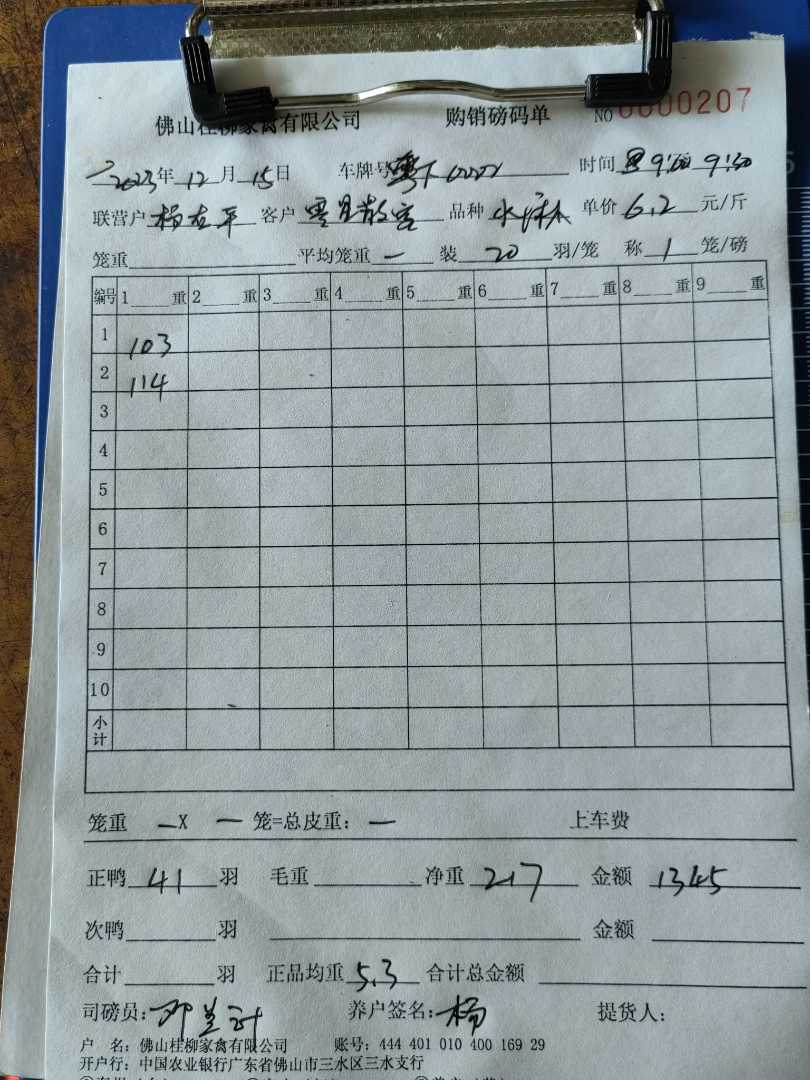 佛山桂柳家禽有限公司 购销磅码单 NO 0000207
2023年 12月 15日 车牌号 时间 9:00 9:30
联营户 杨 平 客户 零 散客 品种 水 单价 6.2 元/斤
笼重 平均笼重 — 装 20 羽/笼 称 1 笼/磅
编号 1 重 2 重 3 重 4 重 5 重 6 重 7 重 8 重 9 重
1 103
2 114
3
4
5
6
7
8
9
10
小计
笼重 —X — 笼=总皮重: — 上车费
正鸭 41 羽 毛重 净重 217 金额 1345
次鸭 羽 金额
合计 羽 正品均重 5.3 合计总金额
司磅员: 邓 养户签名: 杨 提货人:
户 名: 佛山桂柳家禽有限公司 账号: 444 401 010 400 169 29
开户行: 中国农业银行广东省佛山市三水区三水支行